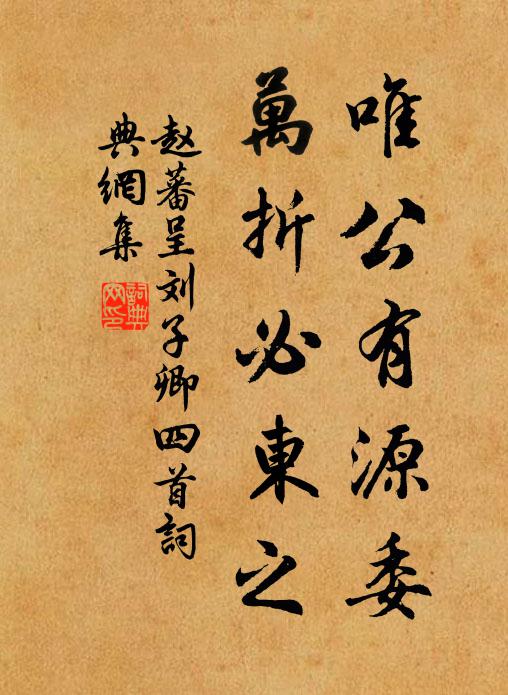 唯公有源委
萬折必東之
赵蕃呈刘子卿四首詞
典網集
詞典網印